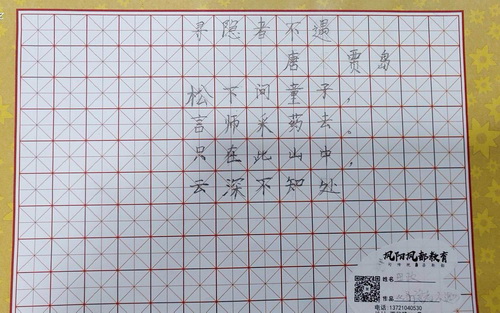 寻隐者不遇
唐 贾岛
松下问童子，
言师采药去。
只在此山中，
云深不知处
凤阳凤都教育
姓名
作品
电话:13721040530